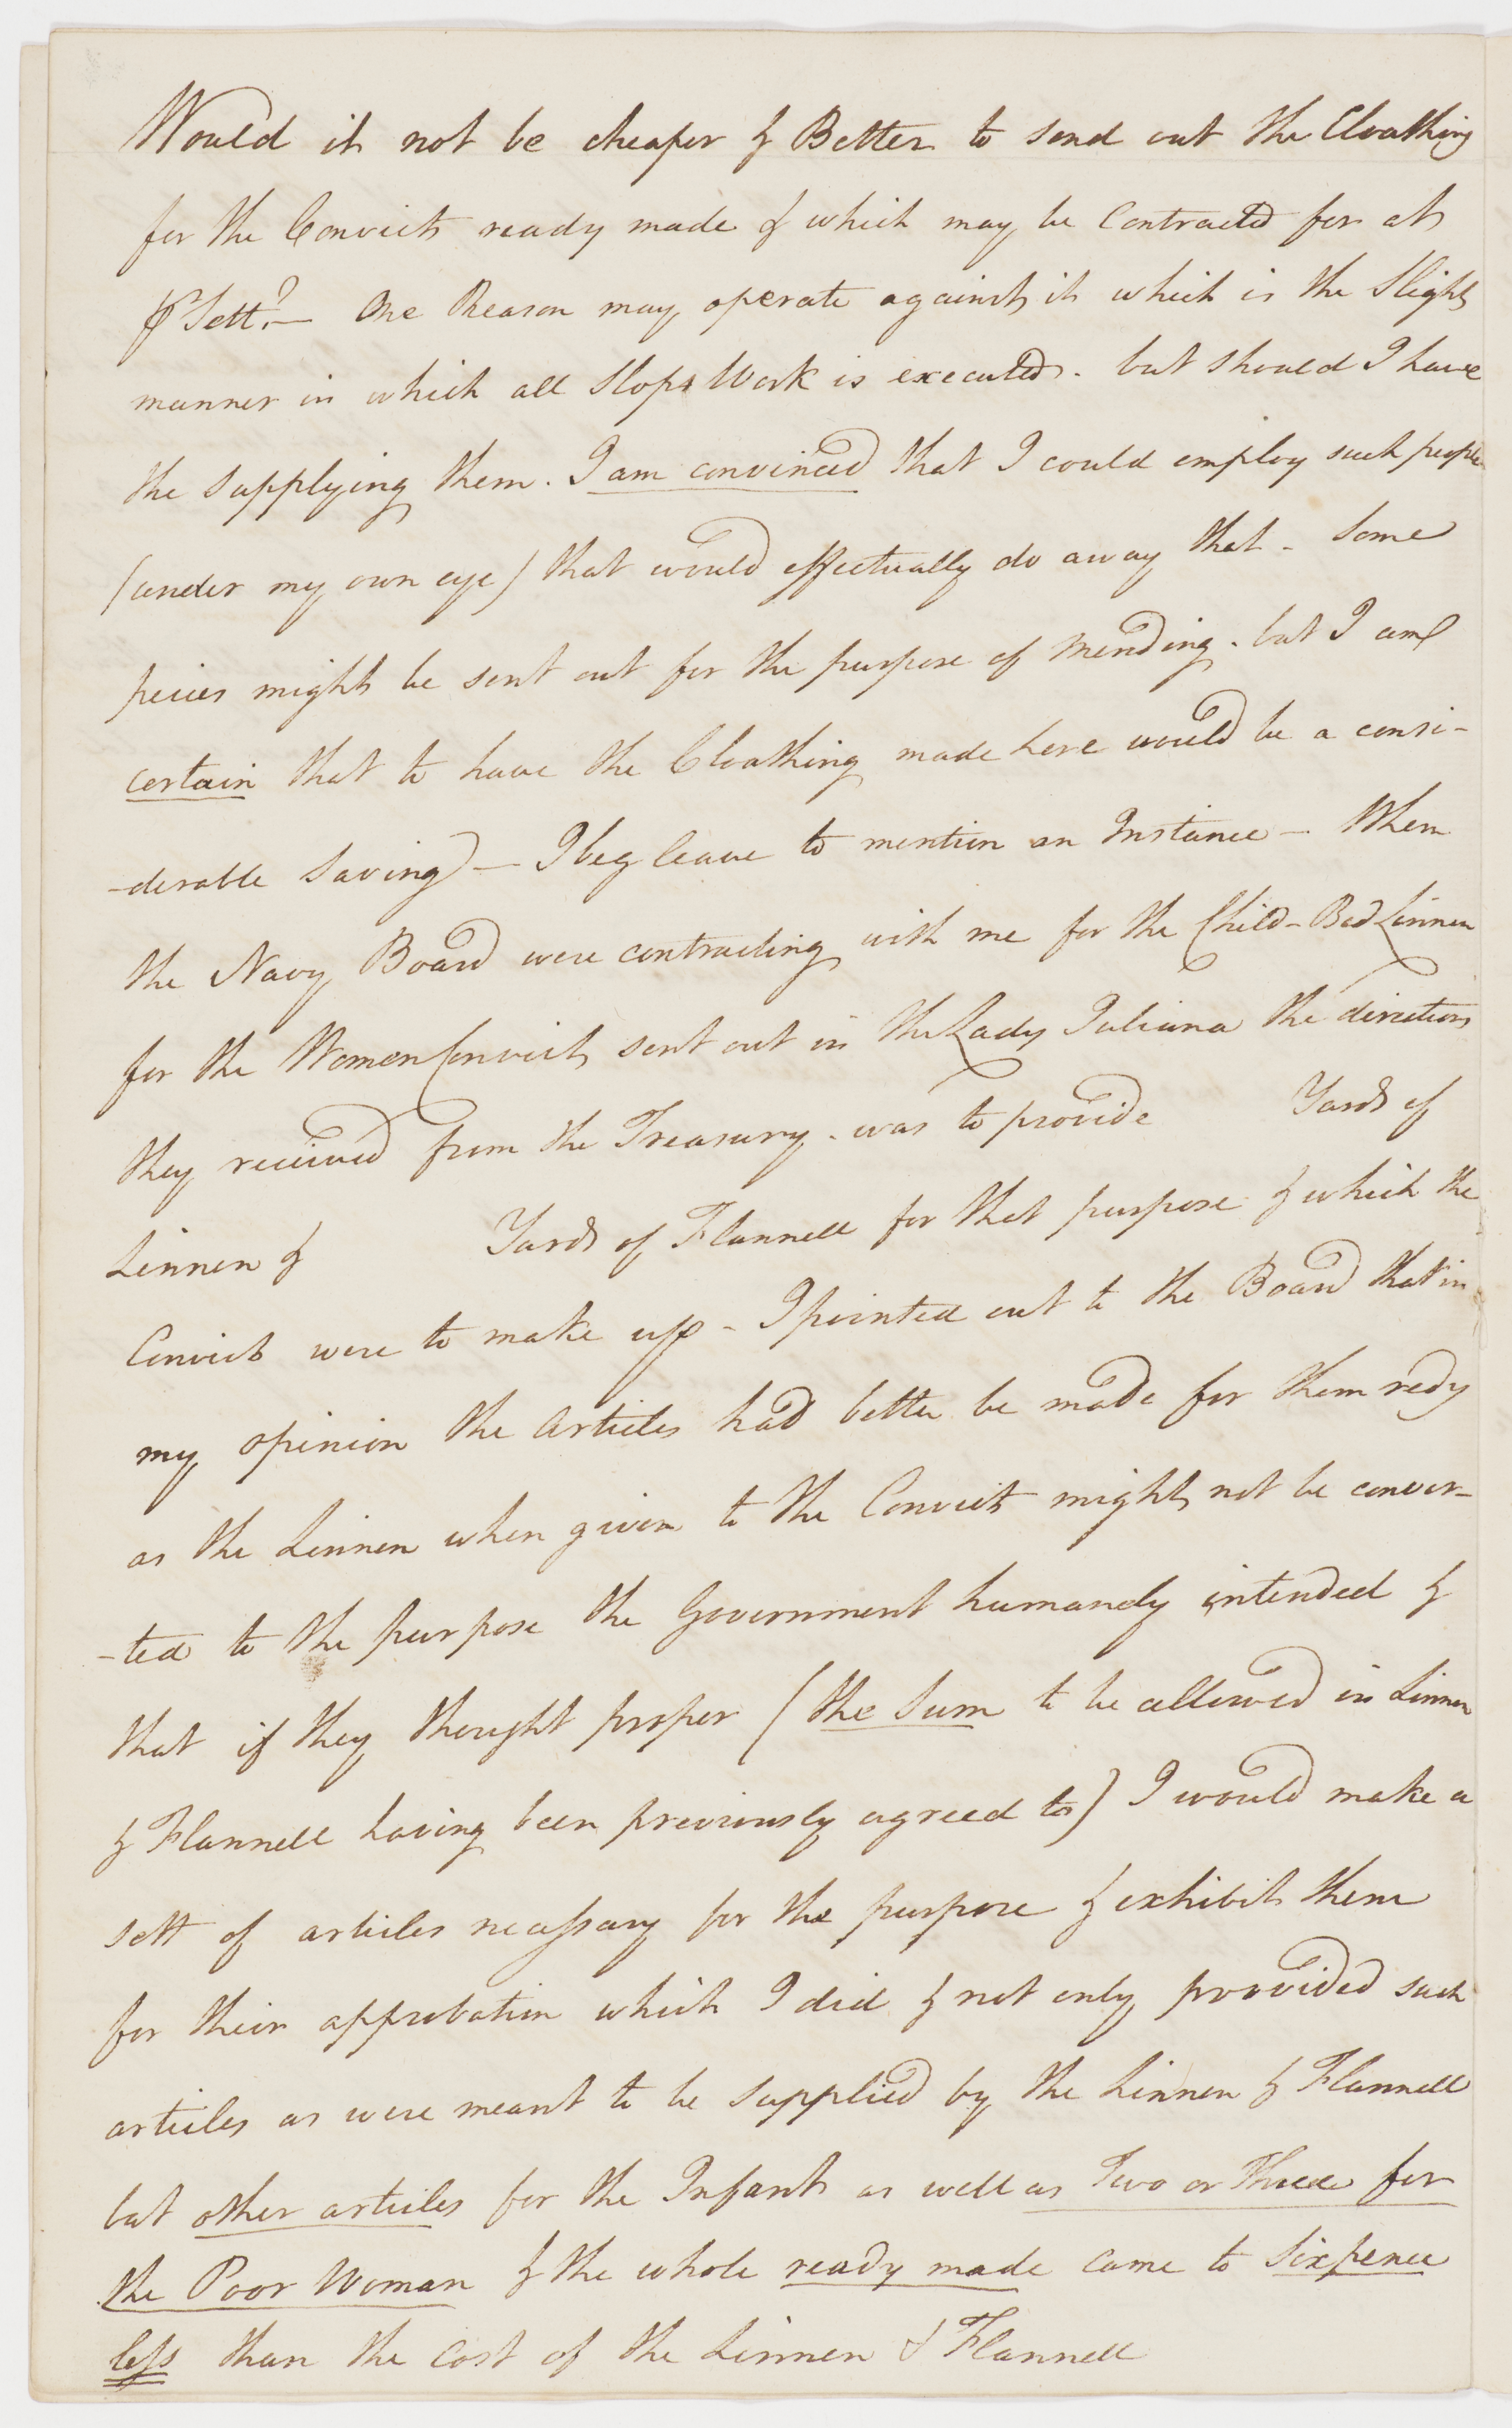 Would it not be cheaper & Better to send out the Cloathing
for the Convicts ready made & which may be Contracted for at
℔ Sett? — One Reason may operate against it which is the Slight
manner in which all Slops Work is executed. but should I have
the supplying them. I am convinced that I could employ such people
(under my own eye) that would effectually do away that - Some
peices might be sent out for the purpose of Mending. but I am
certain that to have the Cloathing made here would be a consi-
-derable Saving — I beg leave to mention an Instance — When
the Navy Board were contracting with me for the Child-Bed Linnen
for the Women Convicts sent out in the Lady Juliana the directions
they received from the Treasury. was to provide Yards of
Linnen & Yards of Flannell for that purpose & which the
Convicts were to make up - I pointed out to the Board that in
my opinion the Articles had better be made for them redy
as the Linnen when given to the Convicts might not be conver-
-ted to the purpose the Government humanely intended &
that if they thought proper (the Sum to be allowed in Linnen
& Flannell having been previously agreed to) I would make a
sett of articles necessary for the purpose & exhibit them
for their approbation which I did & not only provided such
articles as were meant to be supplied by the Linnen & Flannell
but other articles for the Infants as well as Two or Three for
the Poor Woman & the whole ready made came to Sixpence
less than the Cost of the Linnen & Flannell